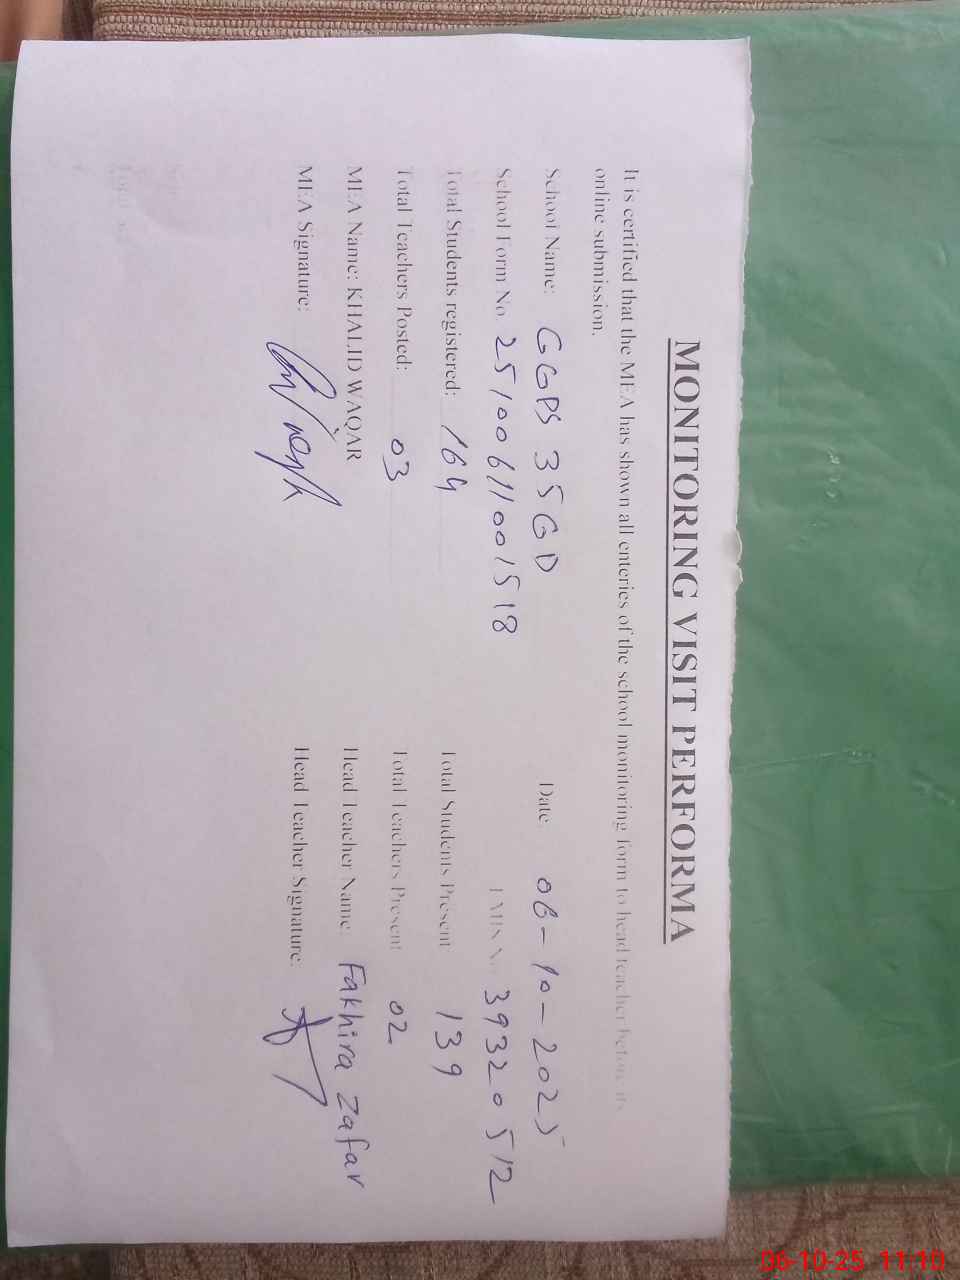 MONITORING VISIT PERFORMA
It is certified that the MEA has shown all enteries of the school monitoring form to head teacher before its
online submission.
School Name: GGPS 35GD Date: 06-10-2025
School Form No. 25100611001518 EMIS No. 39320512
Total Students registered: 164 Total Students Present 139
Total Teachers Posted: 03 Total Teachers Present 02
MEA Name: KHALID WAQAR Head Teacher Name: Fakhira Zafar
MEA Signature: Head Teacher Signature:
06-10-25 11:10